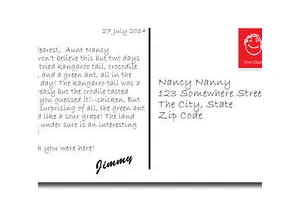 27 July 2014
earest, Aunt Nancy
on't believe this but two days
tried kangaroo tail, crocodile
and a green ant, all in the
day! The kangaroo tail was a
easy but the crodile tasted
you guessed it!--chicken. But
surprising of all, the green ant
d like a sour grape! The land
under sure is an interesting
h you were here!
Jimmy
Nancy Nanny
123 Somewhere Stree
The City, State
Zip Code
First Class